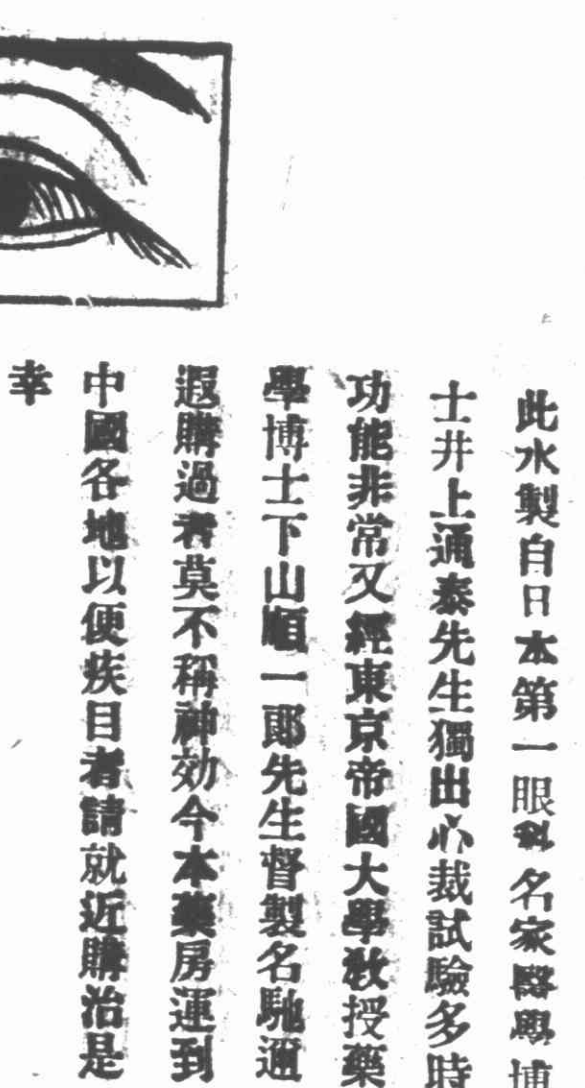 此水製自日本第一眼科名家醫學博
士井上通泰先生獨出心裁試驗多時
功能非常又經東京帝國大學教授藥
學博士下山順一郎先生督製名馳邇
遐購過者莫不稱神効今本藥房運到
中國各地以便疾目者請就近購治是
幸